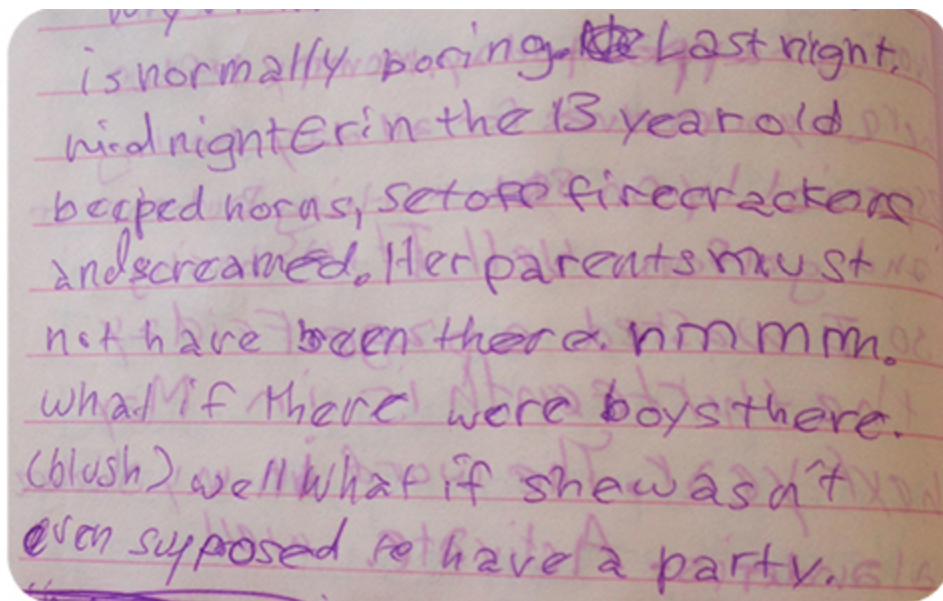 is normally boring. Last night,
midnight Erin the 13 year old
beeped horns, set off firecrackers
and screamed. Her parents must
not have been there. hmmmm.
what if there were boys there.
(blush) well what if she wasn't
even supposed to have a party.